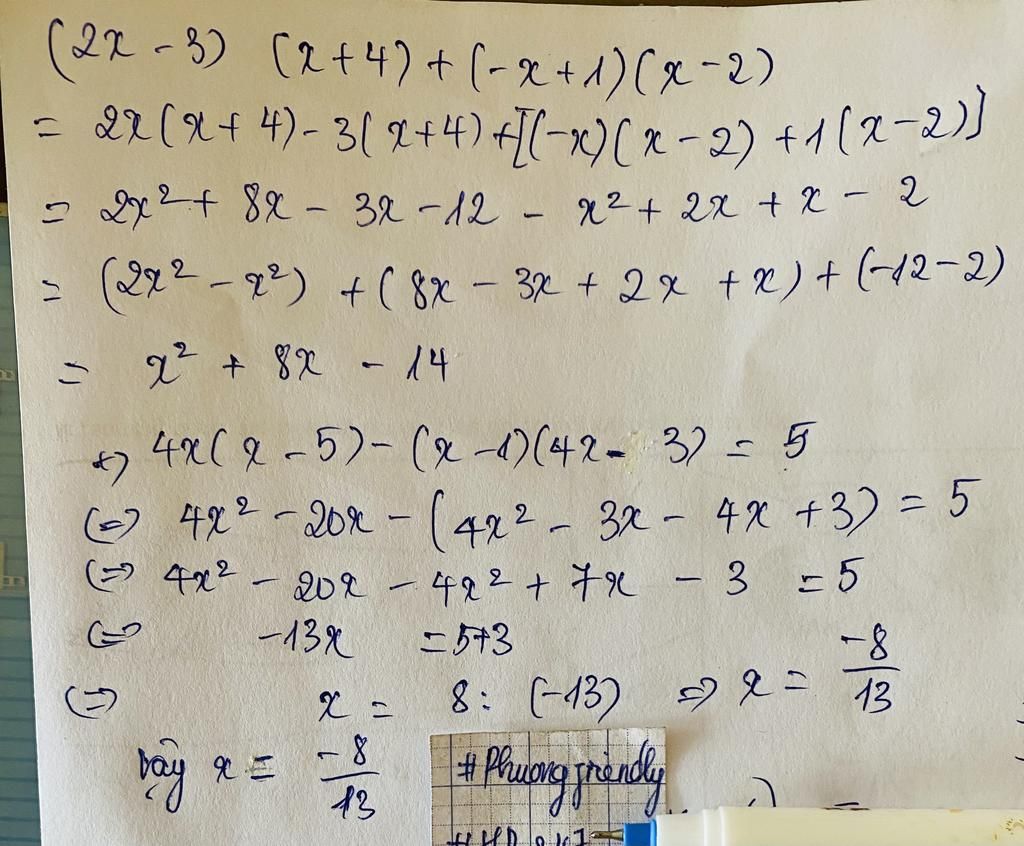 (2x - 3) (x + 4) + (-x + 1)(x - 2)
= 2x(x + 4) - 3(x + 4) + [(-x)(x - 2) + 1(x - 2)]
= 2x² + 8x - 3x - 12 - x² + 2x + x - 2
= (2x² - x²) + (8x - 3x + 2x + x) + (-12 - 2)
= x² + 8x - 14
+) 4x(x - 5) - (x - 1)(4x - 3) = 5
(=) 4x² - 20x - (4x² - 3x - 4x + 3) = 5
(=) 4x² - 20x - 4x² + 7x - 3 = 5
(=) -13x = 5+3
(=) x = 8 : (-13) => x = -8/13
Vậy x = -8/13
#Phuongfriendly